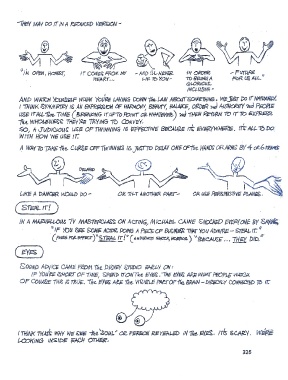 "THEY MAY DO IT IN A REDUCED VERSION -
"I'M OPEN, HONEST,
IT COMES FROM MY HEART...
- AND I'LL NEVER LIE TO YOU -
IN ORDER TO BEING A GLORIOUS, INCLUSIVE -
- FUTURE FOR US ALL."
AND WATCH YOURSELF WHEN YOU'RE LAYING DOWN THE LAW ABOUT SOMETHING. WE JUST DO IT NATURALLY.
I THINK SYMMETRY IS AN EXPRESSION OF HARMONY, BEAUTY, BALANCE, ORDER AND AUTHORITY AND PEOPLE
USE IT ALL THE TIME (BREAKING IT UP TO POINT OR WHATEVER) AND THEN RETURN TO IT TO EXPRESS
THE WHOLENESS THEY'RE TRYING TO CONVEY.
SO, A JUDICIOUS USE OF TWINNING IS EFFECTIVE BECAUSE IT'S EVERYWHERE. IT'S ALL TO DO
WITH HOW WE USE IT.
A WAY TO TAKE THE CURSE OFF TWINNING IS JUST TO DELAY ONE OF THE HANDS OR ARMS BY 4 OR 6 FRAMES
DELAYED
LIKE A DANCER WOULD DO -
OR TILT ANOTHER PART -
OR USE PERSPECTIVE PLANES.
STEAL IT!
IN A MARVELLOUS TV MASTERCLASS ON ACTING, MICHAEL CAINE SHOCKED EVERYONE BY SAYING,
"IF YOU SEE SOME ACTOR DOING A PIECE OF BUSINESS THAT YOU ADMIRE - STEAL IT."
(PAUSE FOR EFFECT) "STEAL IT!" (AUDIENCE GASPS, HORROR) "BECAUSE ... THEY DID."
EYES
SOUND ADVICE CAME FROM THE DISNEY STUDIO EARLY ON:
IF YOU'RE SHORT OF TIME, SPEND IT ON THE EYES. THE EYES ARE WHAT PEOPLE WATCH.
OF COURSE THIS IS TRUE. THE EYES ARE THE VISIBLE PART OF THE BRAIN - DIRECTLY CONNECTED TO IT.
I THINK THAT'S WHY WE SEE THE "SOUL" OR PERSON REVEALED IN THE EYES. IT'S SCARY. WE'RE
LOOKING INSIDE EACH OTHER.
325